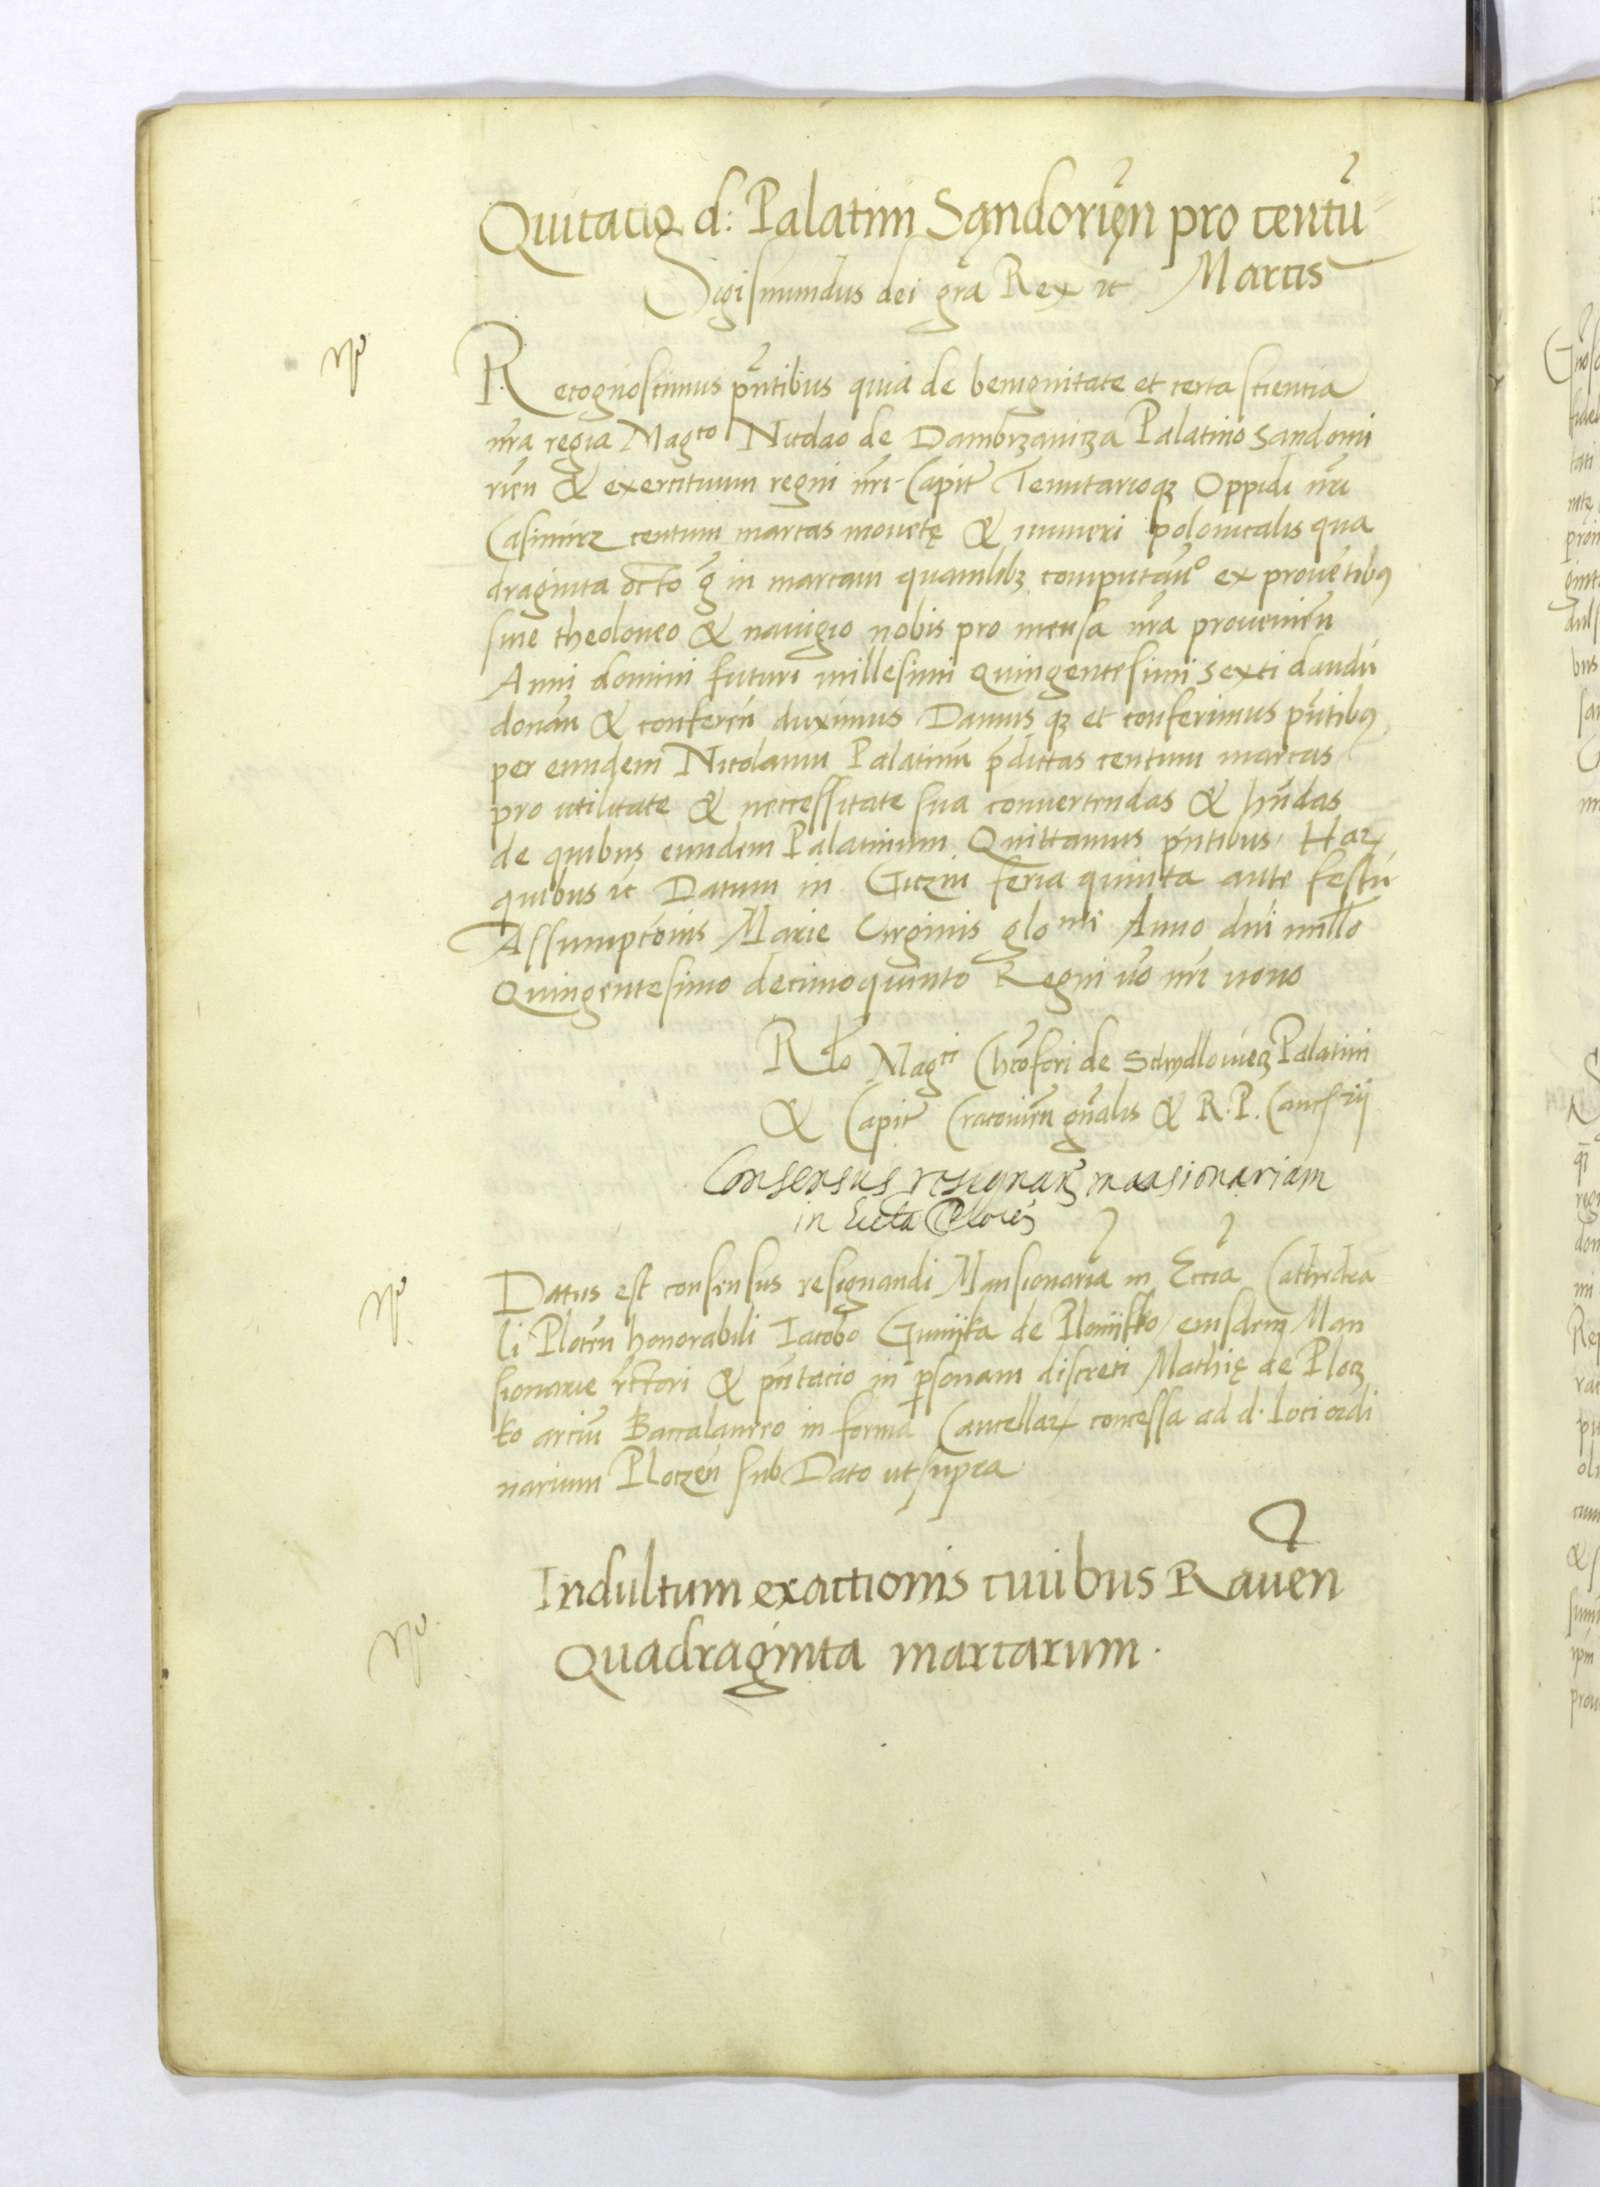 Quitatio d: Palatini Sandorien pro centu
Marcis
Sigismundus dei gra Rex ic
Recognoscimus pntibus quia de benignitate et certa scientia
nra regia Magco Nicolao de Dambrzaviza Palatino Sandomi
rien & exercituum regni nri Capit Tenutarioq Oppidi nri
Casimirz centum marcas monetę & numeri polonicalis qua
draginta octo g in marcam quamlibz computan° ex proventibq
sive theoloneo & navigio nobis pro mensa nra provenien
Anni domini futuri millesimi Quingentesimi sexti dandu
donan & conferen duximus Damus qz et conferimus pntibq
per eundem Nicolaum Palatinu pdictas centum marcas
pro utilitate & neccessitate sua convertendas & hndas
de quibus eundem Palatinum Quittamus pntibus. Har
quibus ic Datum in Giczni feria quinta ante festu
Assumpcõnis Marie Virginis glo Anno dni millo
Quingentesimo decimoquinto Regni vo nri nono
Rlo Magci Chrofori de Schydlowiez Palatini
& Capit Cracovien gnalis & R. P. Cancrii
Consensus resignan mansionariam
in Eccla Plocen
Datus est consensus resignandi Mansionaria in Eccia Cathedra
li Plocen honorabili Iacobo de eiusdem Man
sionarie rectori & pntacio in psonam discreti Mathię de Plocz
ko arciu Baccalaureo in forma Cancellar concessa ad d. loci ordi
narium Ploczen sub Dato ut supra
Indultum exactionis civibus Raven
Quadraginta marcarum.